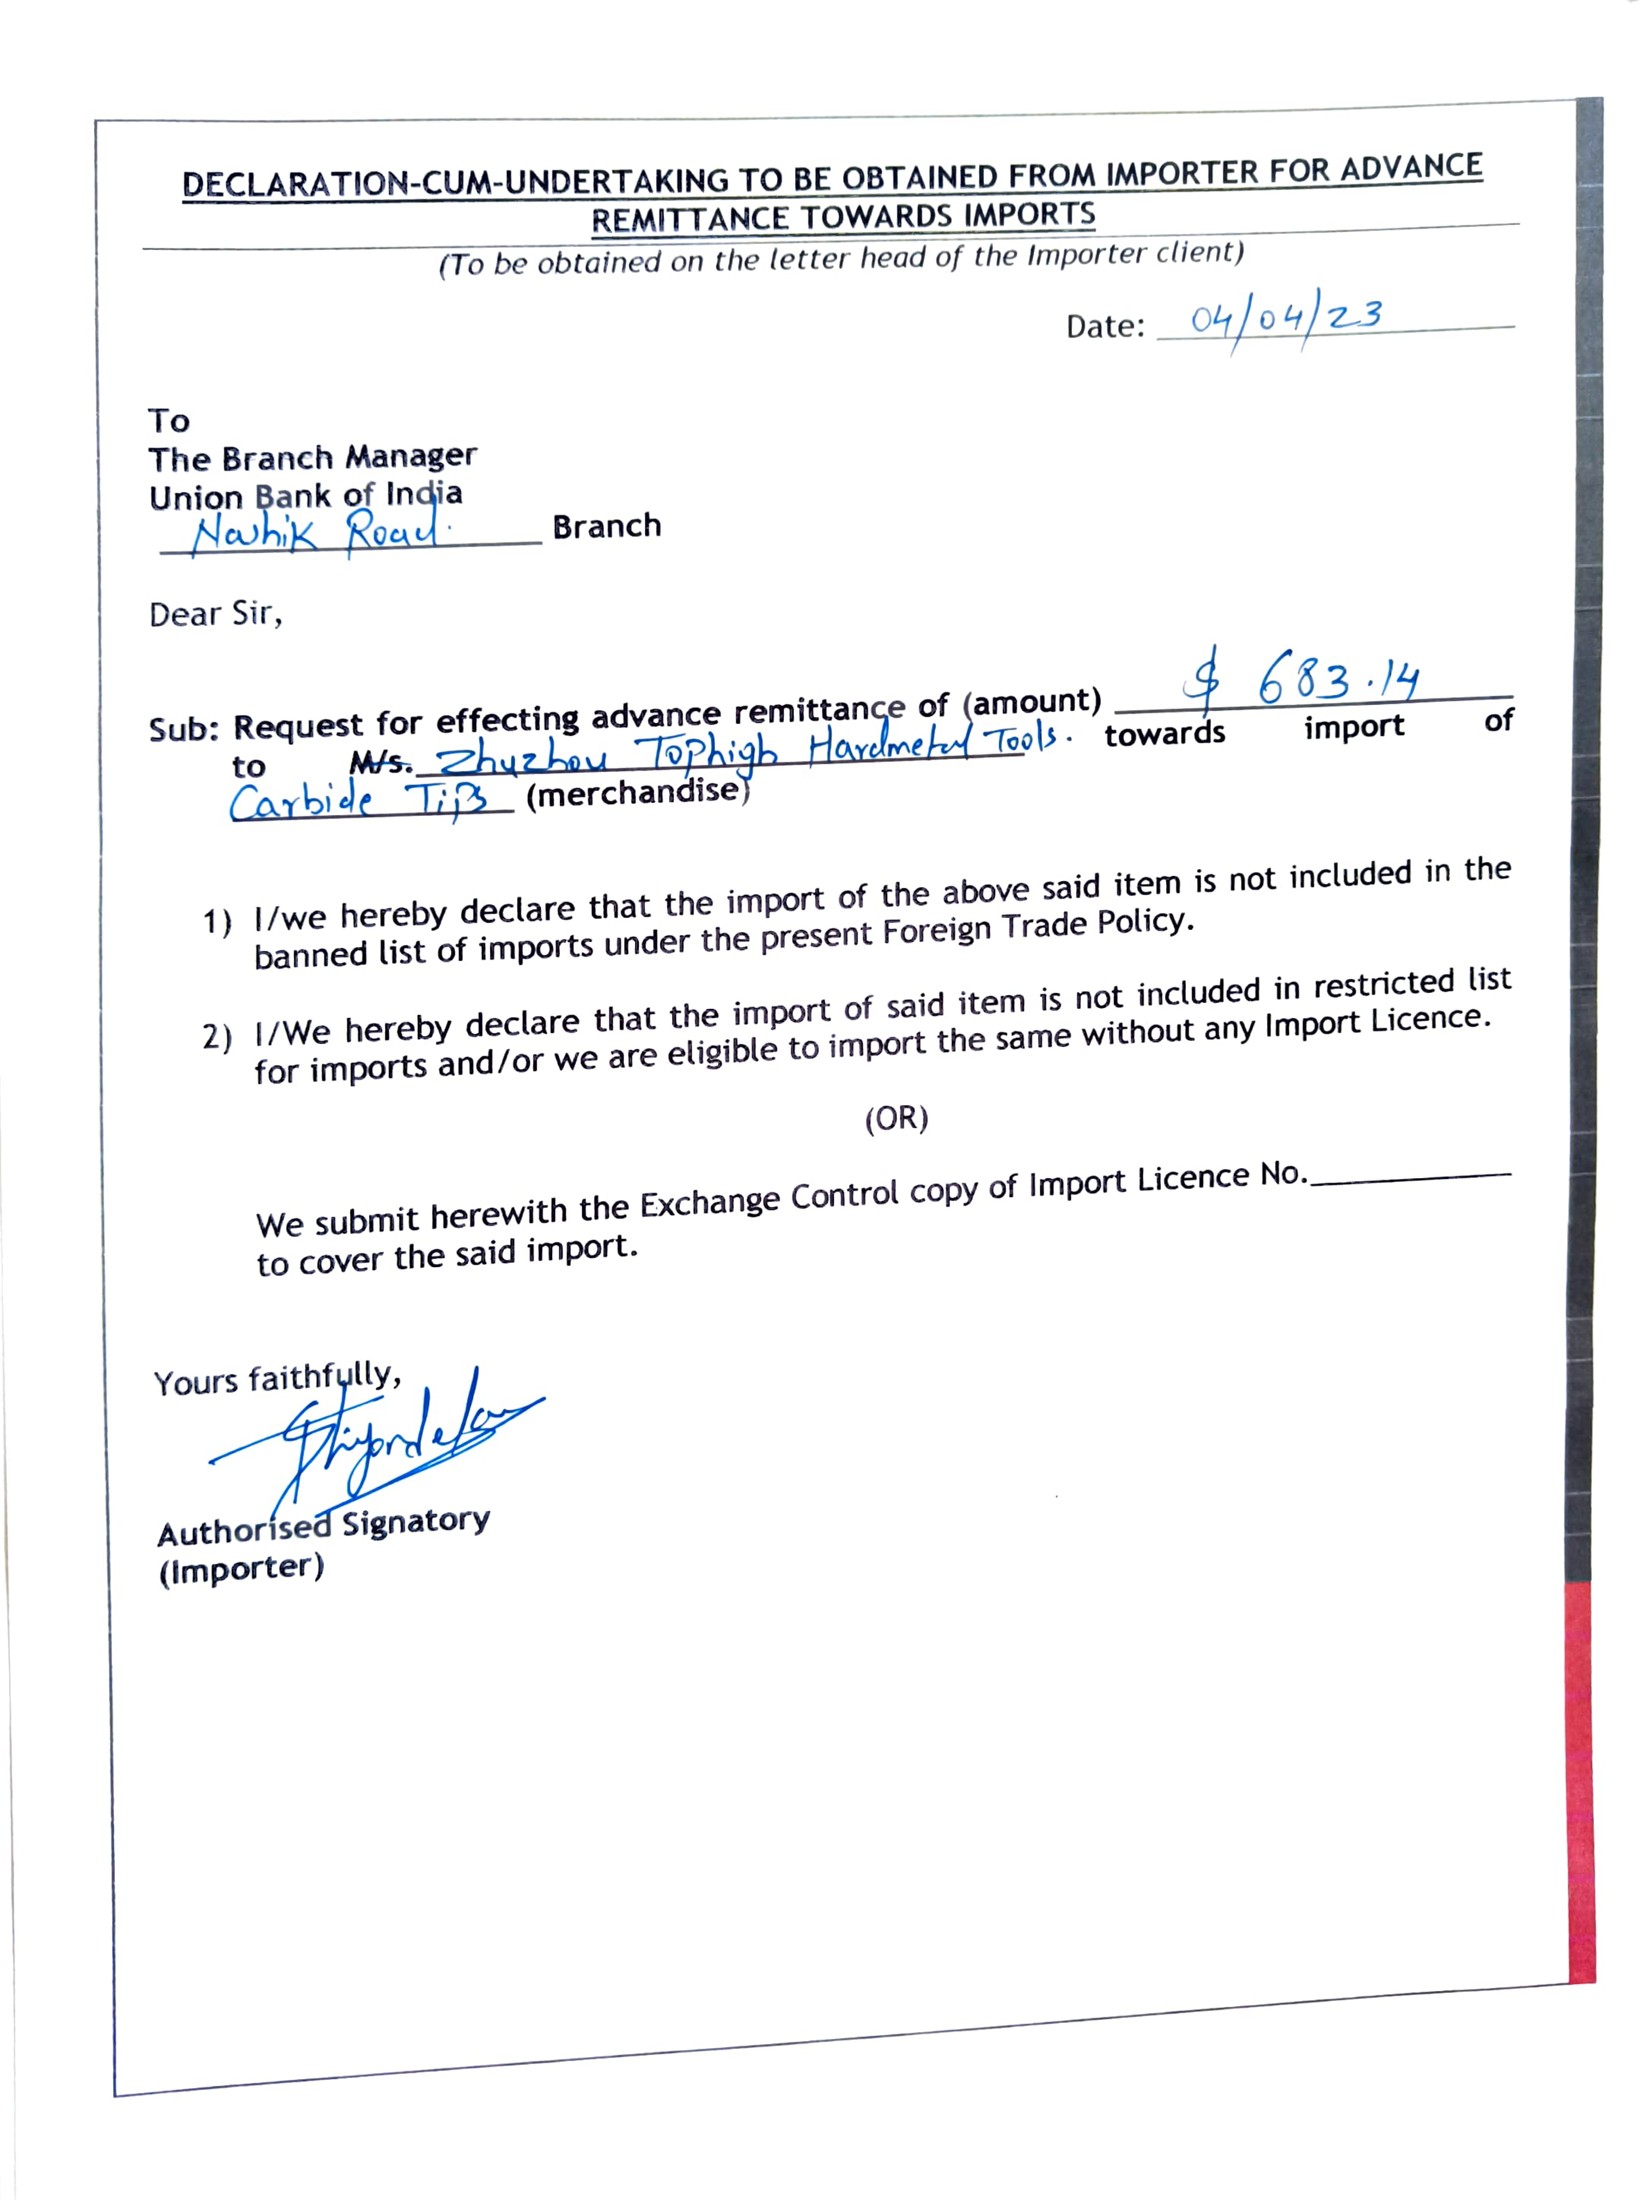 DECLARATION-CUM-UNDERTAKING TO BE OBTAINED FROM IMPORTER FOR ADVANCE
REMITTANCE TOWARDS IMPORTS
(To be obtained on the letter head of the Importer client)
Date: 04/04/23
To
The Branch Manager
Union Bank of India
Nashik Road. Branch
Dear Sir,
Sub: Request for effecting advance remittance of (amount) $ 683.14
to M/s. Zhuzhou Tophigh Hardmetal Tools. towards import of
Carbide Tips (merchandise)
1) I/we hereby declare that the import of the above said item is not included in the
banned list of imports under the present Foreign Trade Policy.
2) I/We hereby declare that the import of said item is not included in restricted list
for imports and/or we are eligible to import the same without any Import Licence.
(OR)
We submit herewith the Exchange Control copy of Import Licence No.
to cover the said import.
Yours faithfully,
Authorised Signatory
(Importer)